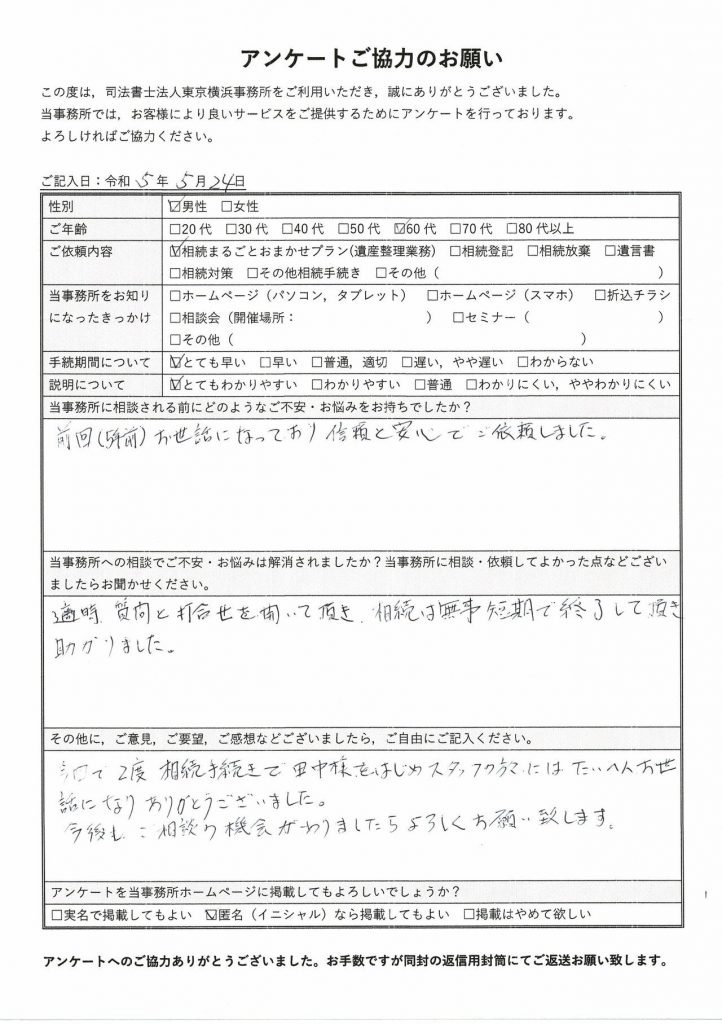 アンケートご協力のお願い
この度は，司法書士法人東京横浜事務所をご利用いただき，誠にありがとうございました。
当事務所では，お客様により良いサービスをご提供するためにアンケートを行っております。
よろしければご協力ください。
ご記入日：令和 5 年 5 月 24 日
性別 ☑男性 □女性
ご年齢 □20代 □30代 □40代 □50代 ☑60代 □70代 □80代以上
ご依頼内容 ☑相続まるごとおまかせプラン(遺産整理業務) □相続登記 □相続放棄 □遺言書
□相続対策 □その他相続手続き □その他（ ）
当事務所をお知り □ホームページ（パソコン，タブレット） □ホームページ（スマホ） □折込チラシ
になったきっかけ □相談会（開催場所： ） □セミナー（ ）
□その他（ ）
手続期間について ☑とても早い □早い □普通，適切 □遅い，やや遅い □わからない
説明について ☑とてもわかりやすい □わかりやすい □普通 □わかりにくい，ややわかりにくい
当事務所に相談される前にどのようなご不安・お悩みをお持ちでしたか？
前回(5年前) お世話になっており 信頼と安心でご依頼しました。
当事務所への相談でご不安・お悩みは解消されましたか？当事務所に相談・依頼してよかった点などござい
ましたらお聞かせください。
適時、質問と打合せを開いて頂き、相続は無事短期で終了して頂き
助かりました。
その他に，ご意見，ご要望，ご感想などございましたら，ご自由にご記入ください。
今回で2度 相続手続きで田中様をはじめスタッフの方々にはたいへんお世
話になりありがとうございました。
今後も、ご相談の機会がありましたらよろしくお願い致します。
アンケートを当事務所ホームページに掲載してもよろしいでしょうか？
□実名で掲載してもよい ☑匿名（イニシャル）なら掲載してもよい □掲載はやめて欲しい
アンケートへのご協力ありがとうございました。お手数ですが同封の返信用封筒にてご返送お願い致します。